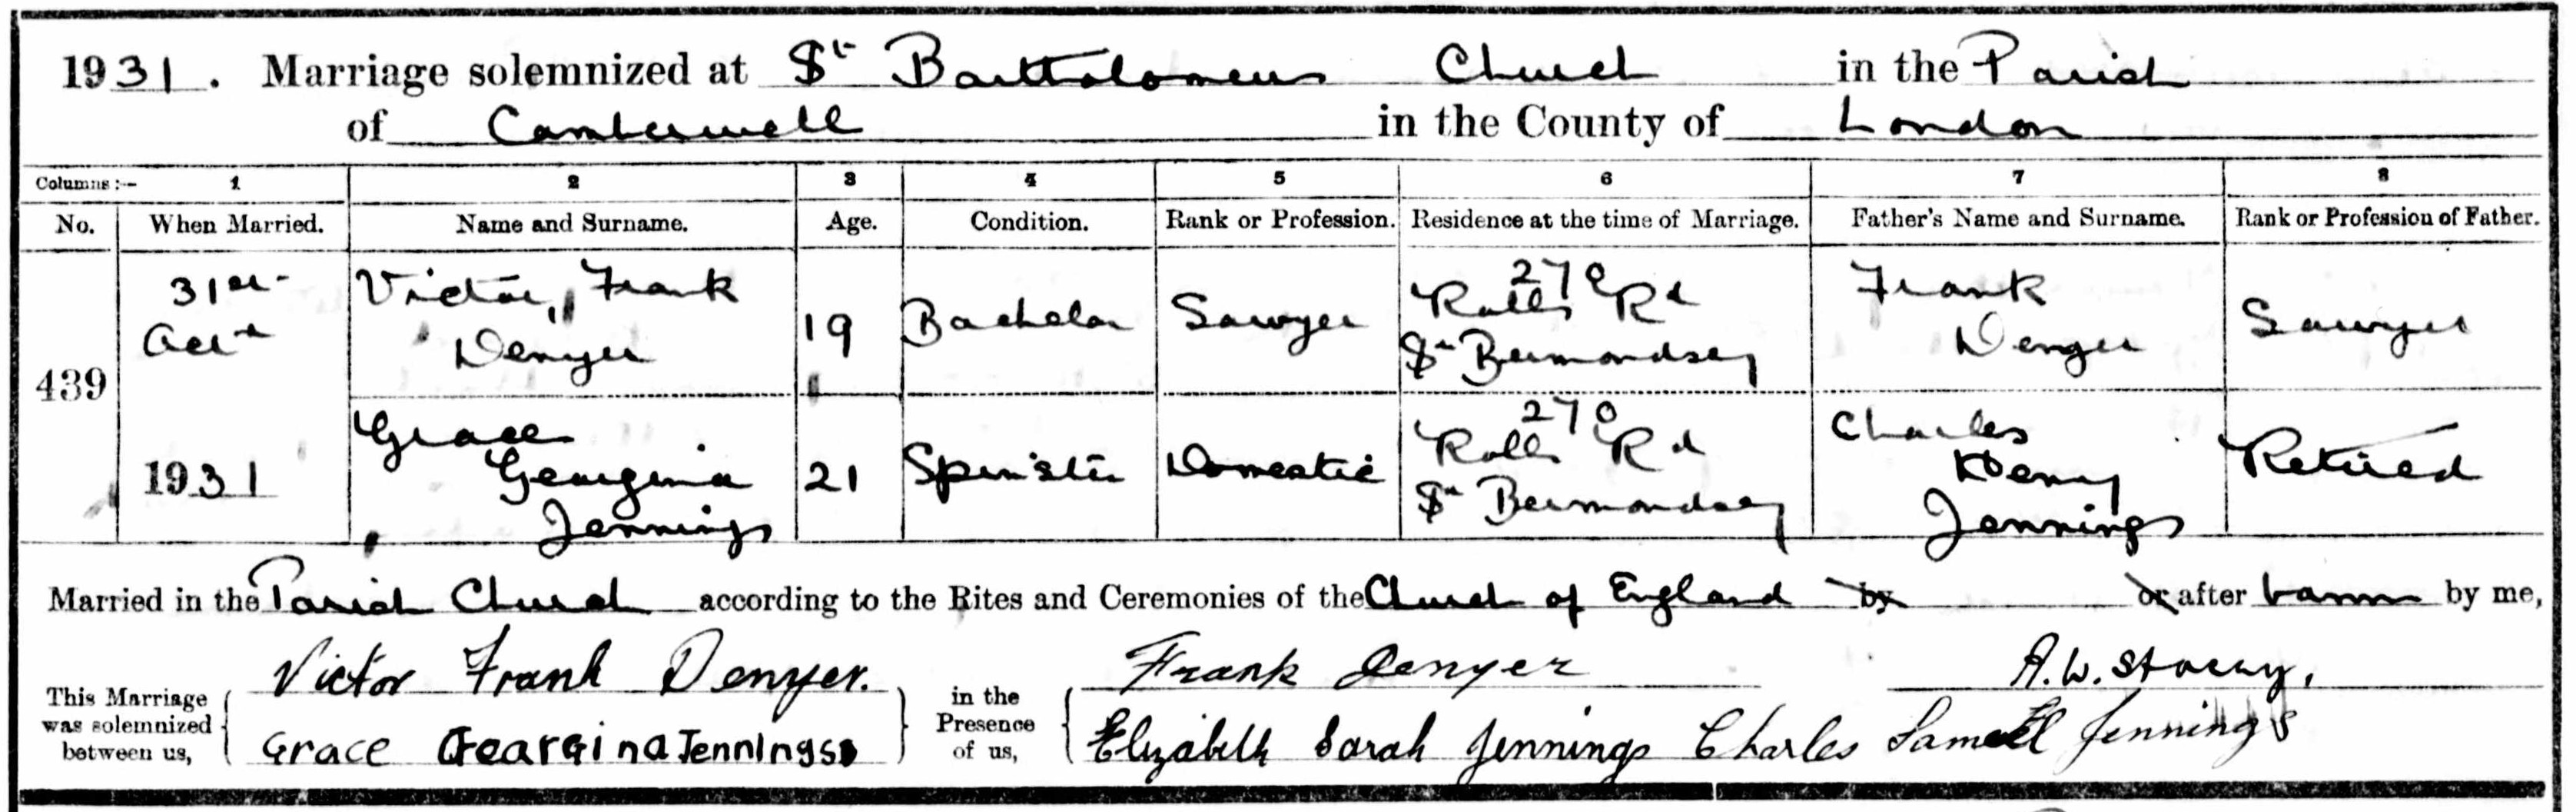 1931. Marriage solemnized at St Bartholomews Church in the Parish
of Camberwell in the County of London
Columns :— 1 2 3 4 5 6 7 8
No. When Married. Name and Surname. Age. Condition. Rank or Profession. Residence at the time of Marriage. Father's Name and Surname. Rank or Profession of Father.
439
31st
Oct
1931
Victor, Frank
Denyer
19
Bachelor
Sawyer
270
Rolls Rd
Bermondsey
Frank
Denyer
Sawyer
Grace
Georgina
Jennings
21
Spinster
Domestic
270
Rolls Rd
Bermondsey
Charles
Henry
Jennings
Retired
Married in the Parish Church according to the Rites and Ceremonies of the Church of England by or after banns by me,
This Marriage
was solemnized
between us,
Victor Frank Denyer.
Grace Geargina Jennings
in the
Presence
of us,
Frank Denyer
Elizabeth Sarah Jennings Charles Samuel Jennings
A.W. Stacey,